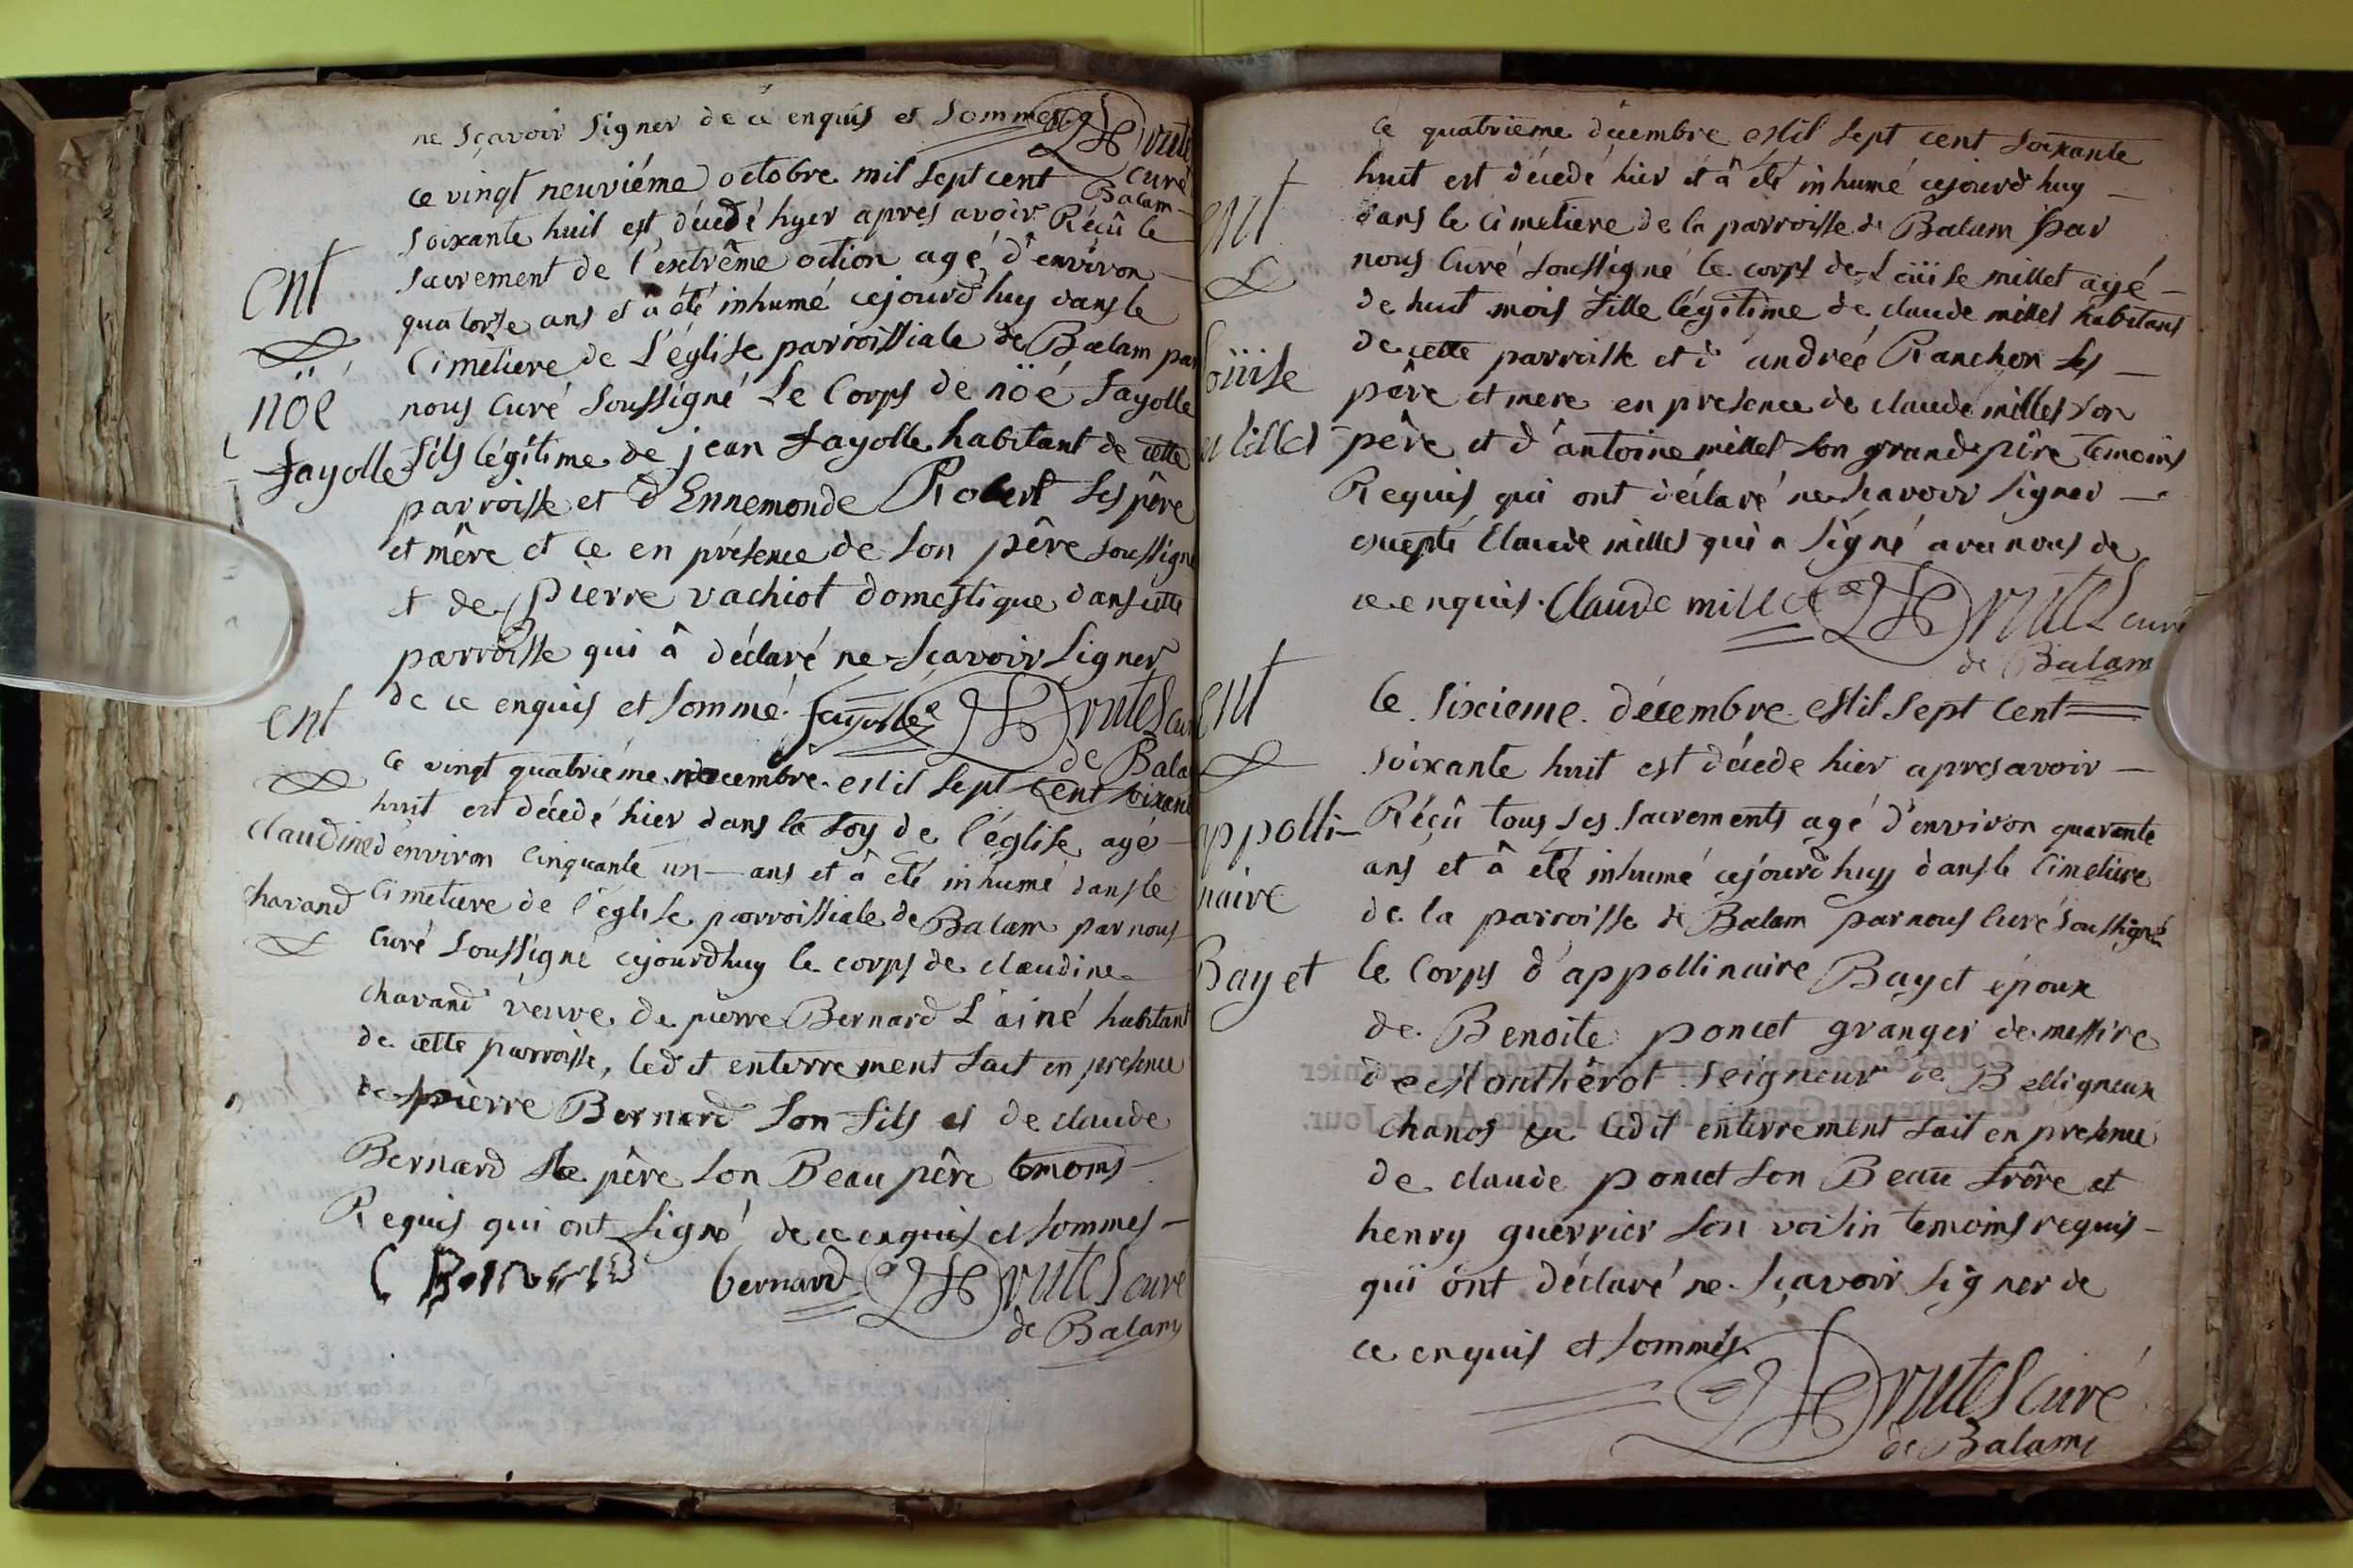 ne sçavoir signer de ce enquis et sommés Drutel
curé
Balam
ent
nöé
fayolle
ce vingt neuviéme octobre mil sept cent
soixante huit est décedé hyer apres avoir Réçû le
sacrement de l'extrême oction agé d'environ
quatorse ans et a été inhumé cejourd'huy dans le
Cimetiere de L'église parroissiale de Balam par
nous Curé soussigné Le Corps de nöé fayolle
fils légitime de jean fayolle habitant de cette
parroisse et d'Ennemonde Robert ses pêre
et mêre et ce en présence de son pêre soussigné
et de pierre vachiot domestique dans cette
parroisse qui â déclaré ne sçavoir signer
de ce enquis et sommé. fayolle Drutel curé
de Balam
ent
claudine
charand
Ce vingt quatriéme mil sept cent soixante
huit est décedé hier dans la foy de l'église agé
d'environ Cinquante un ans et â été inhumé dans le
Cimetiere de l'église parroissiale de Balam par nous
Curé soussigné cejourdhuy le corps de claudine
charand veuve de pierre Bernard L'ainé habitant
de cette parroisse, ledit enterrement fait en presence
de pierre Bernard son fils et de claude
Bernard le pêre son Beau pêre temoins
Requis qui ont signé de ce enquis et sommes
bernard Drutel curé
de Balam
ent
Loüise
millet
Ce quatrieme décembre mil sept cent soixante
huit est décedé hier et â été inhumé cejourd'huy
dans le Cimetiere de la parroisse de Balam par
nous Curé soussigné le corps de Loüise millet agé
de huit mois fille légitime de claude millet habitant
de cette parroisse et d'andrée Ranchon ses
pêre et mere en presence de claude millet son
pêre et d'antoine millet son grand pêre temoins
Requis qui ont déclaré ne sçavoir signer
excepté Claude millet qui a signé avec nous de
ce enquis. Claude millet Drutel curé
de Balam
ent
appolli-
naire
Bayet
le sixieme décembre mil sept cent
soixante huit est décede hier apres avoir
Réçû tous ses sacrements agé d'environ quarante
ans et â été inhumé cejourd'huy dans le Cimetiere
de la parroisse de Balam par nous Curé soussigné
le Corps d'appollinaire Bayet époux
de Benoite poncet granger de messire
de Montherot seigneur de Belligneux
chanos ledit enterrement fait en presence
de claude poncet son Beau frêre et
henry guerrier son voisin temoins requis
qui ont déclaré ne sçavoir signer de
ce enquis et sommés.
Drutel curé
de Balam